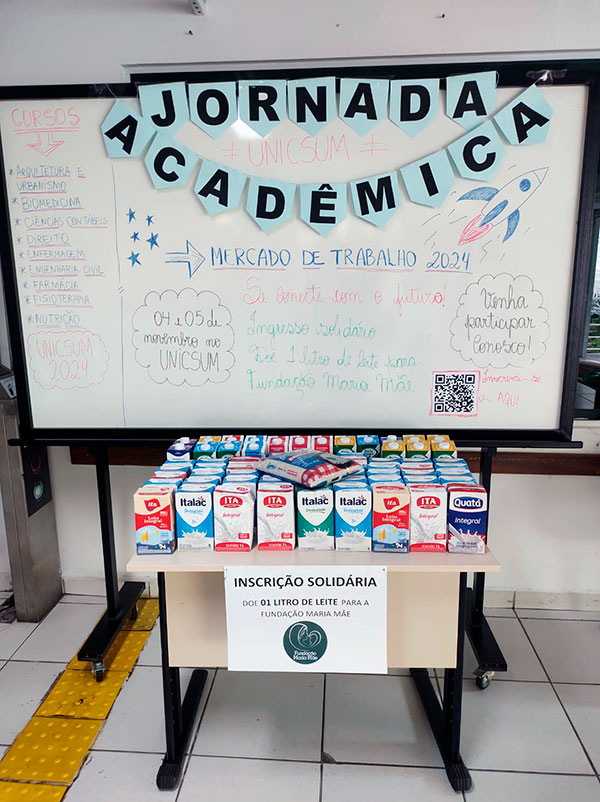 JORNADA
ACADÊMICA
≠ UNICSUM ≠
CURSOS
* ARQUITETURA E
URBANISMO
* BIOMEDICINA
* CIÊNCIAS CONTÁBEIS
* DIREITO
* ENFERMAGEM
* ENGENHARIA CIVIL
* FARMÁCIA
* FISIOTERAPIA
* NUTRIÇÃO
UNICSUM
2024
MERCADO DE TRABALHO 2024
Se conecte com o futuro!
04 e 05 de
novembro no
UNICSUM
Ingresso solidário
Doe 1 litro de leite para:
Fundação Maria Mãe
Venha
participar
conosco!
Inscreva-se
AQUI
ita Leite Integral
Italac Integral
ITA Integral
ITA Integral
Italac
Italac Integral
ita Leite Integral
ITA Integral
Quatá Integral
INSCRIÇÃO SOLIDÁRIA
DOE 01 LITRO DE LEITE PARA A
FUNDAÇÃO MARIA MÃE
Fundação
Maria Mãe